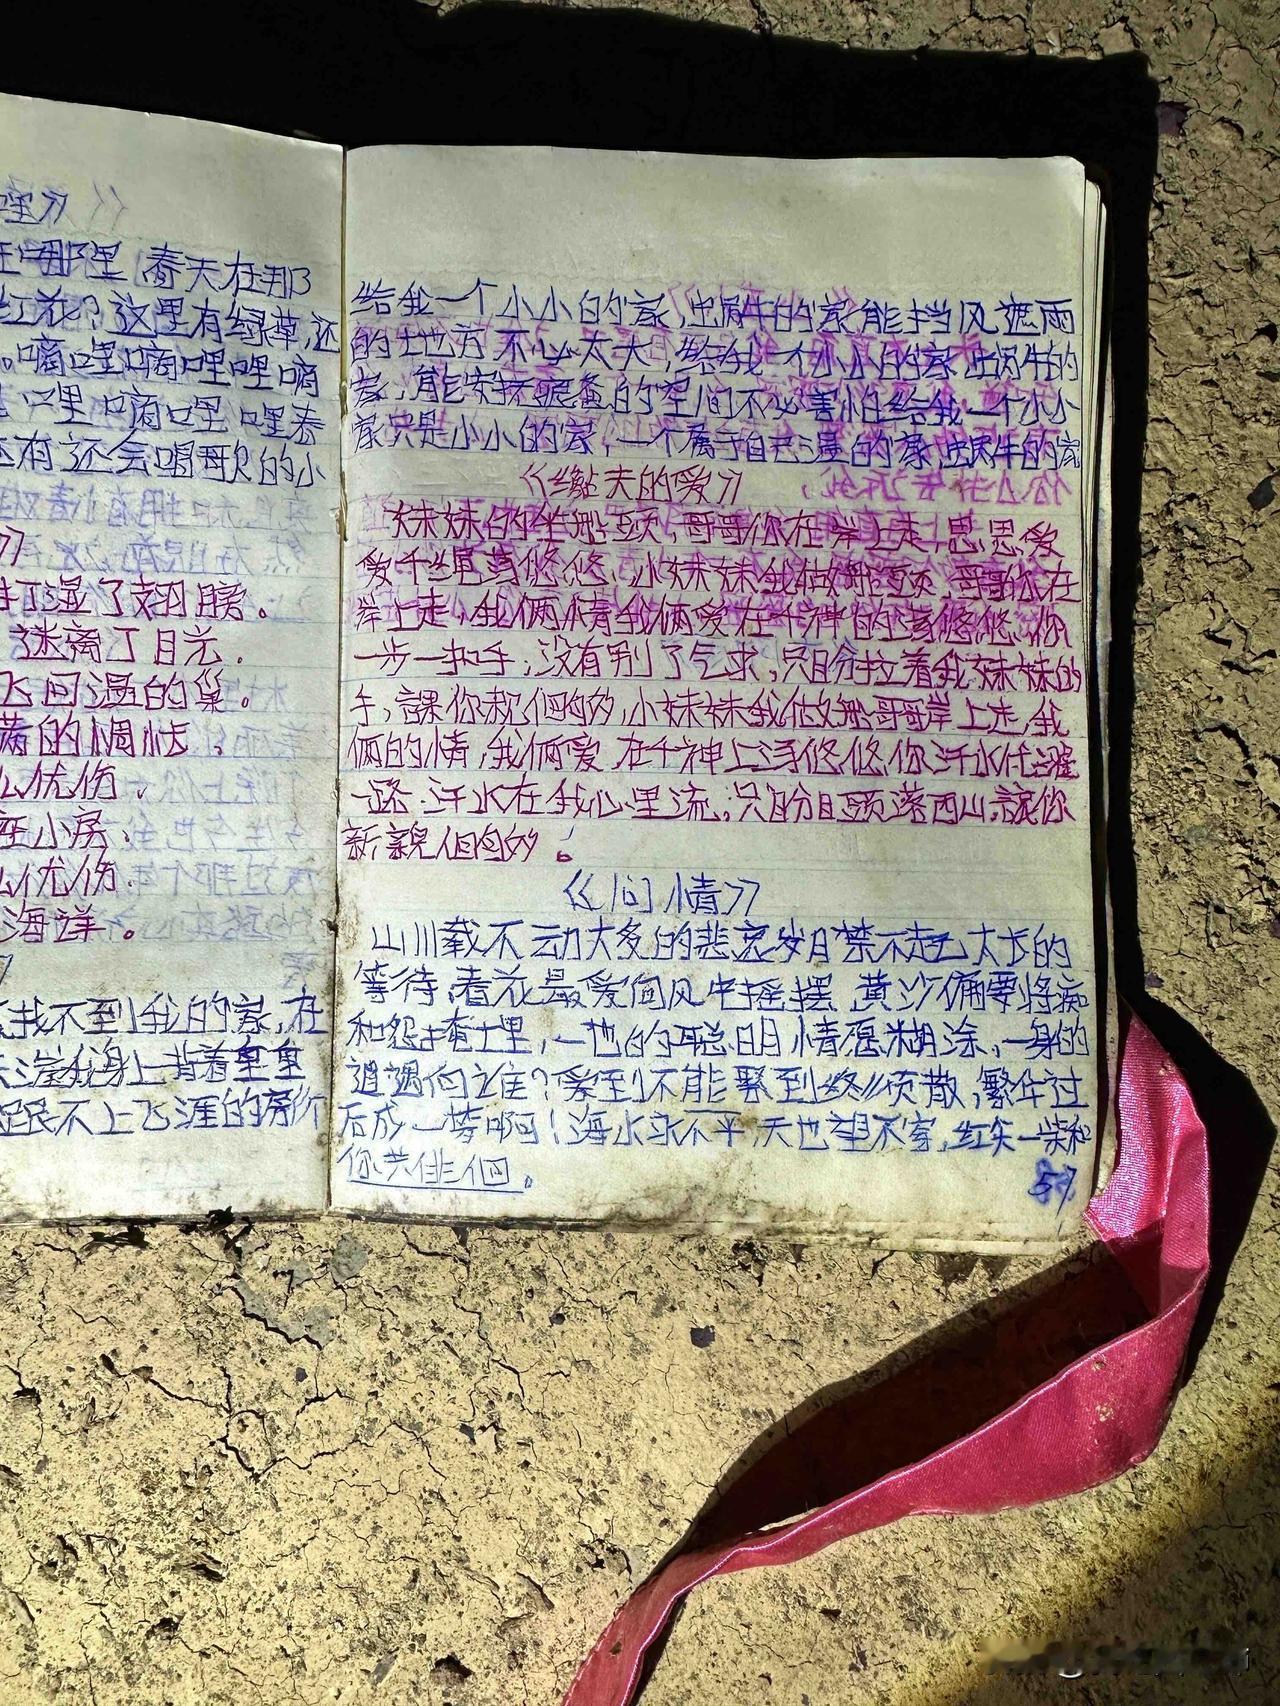 哩》
在哪里 春天在那
红花？这里有绿草,还
。嘀哩嘀哩哩嘀
哩嘀哩哩春
还有还会唱歌的小
打湿了翅膀。
迷离了目光.
飞回温的巢。
满的惆怅,
么忧伤.
座小房.
么忧伤.
海洋。
找不到我的家,在
天涯我身上背着重重
跟不上飞涨的房价
给我一个小小的家,蜗牛的家,能挡风遮雨
的地方 不必太大,给我一个小小的家蜗牛的
家,能安 的 间不必害怕给我一个小小
家只是小小的家,一个属于自己温 的家,蜗牛的家
《纤夫的爱》
妹妹的坐船头,哥哥你在岸上走,恩恩爱
爱纤绳荡悠悠,小妹妹我做船头 哥哥你在
岸上走,我俩情我俩爱在千神的荡悠悠,你
一步一扣手,没有别了乞求,只盼拉着我妹妹的
手,課你亲個够,小妹妹我做船哥哥岸上走,我
俩的情,我俩爱 在千神上 悠悠你汗水 灑
一路.汗水在我心里流,只盼日頭落西山,讓你
新親個够。
《问情》
山川載不动太多的悲哀岁月禁不起太长的
等待,春花最爱向风中摇摆 黄沙偏要将痴
和怨掩土里,一地的聪明情愿糊涂,一身的
遭遇向谁？爱到不能聚到终须散,繁华过
后成一梦啊！海水永不平,天也望不穿,红尘一 和
你共徘徊。
57